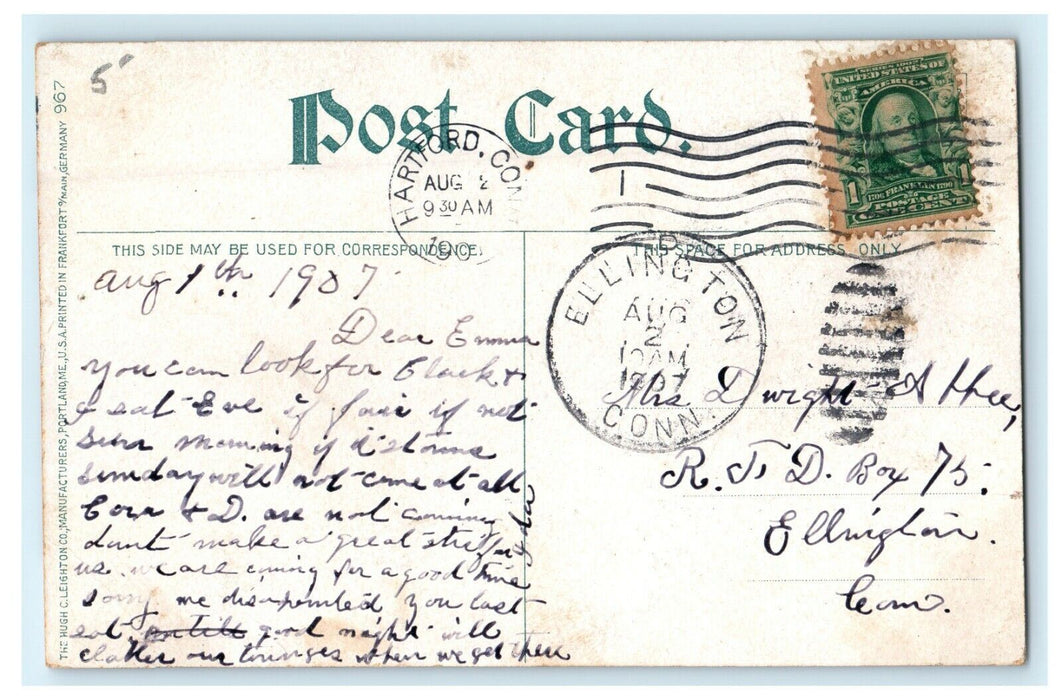 5
Post Card.
HARTFORD, CONN
AUG 2
9 30 AM
190
UNITED STATES OF
AMERICA
1
1706 FRANKLIN 1790
POSTAGE
ONE CENT
THIS SIDE MAY BE USED FOR CORRESPONDENCE.
THIS SPACE FOR ADDRESS ONLY
ELLINGTON
AUG
2
10AM
1907
CONN.
Aug 1th 1907
Dear Emma
you can look for Clark &
I sat Eve if fair if not
Sun morning if it storms
sunday will not come at all
Cora & D. are not coming
dont make a great stew for
us. we are coming for a good time
sorry we disapointed you last
sat. good night will
clatter our tounges when we get there
Mrs Dwight A
R. F. D. Box 75.
Ellington.
Conn.
THE HUGH C. LEIGHTON CO., MANUFACTURERS, PORTLAND, ME., U.S.A. PRINTED IN FRANKFORT o/MAIN, GERMANY 967